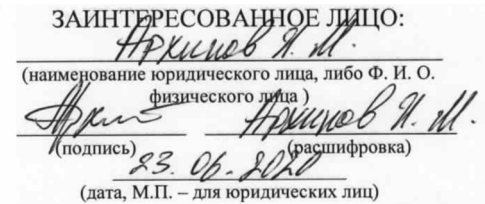 ЗАИНТЕРЕСОВАННОЕ ЛИЦО:
Архипов И. М.
(наименование юридического лица, либо Ф. И. О.
физического лица )
Архип Архипов И. М.
(подпись) (расшифровка)
23. 06. 2020
(дата, М.П. – для юридических лиц)